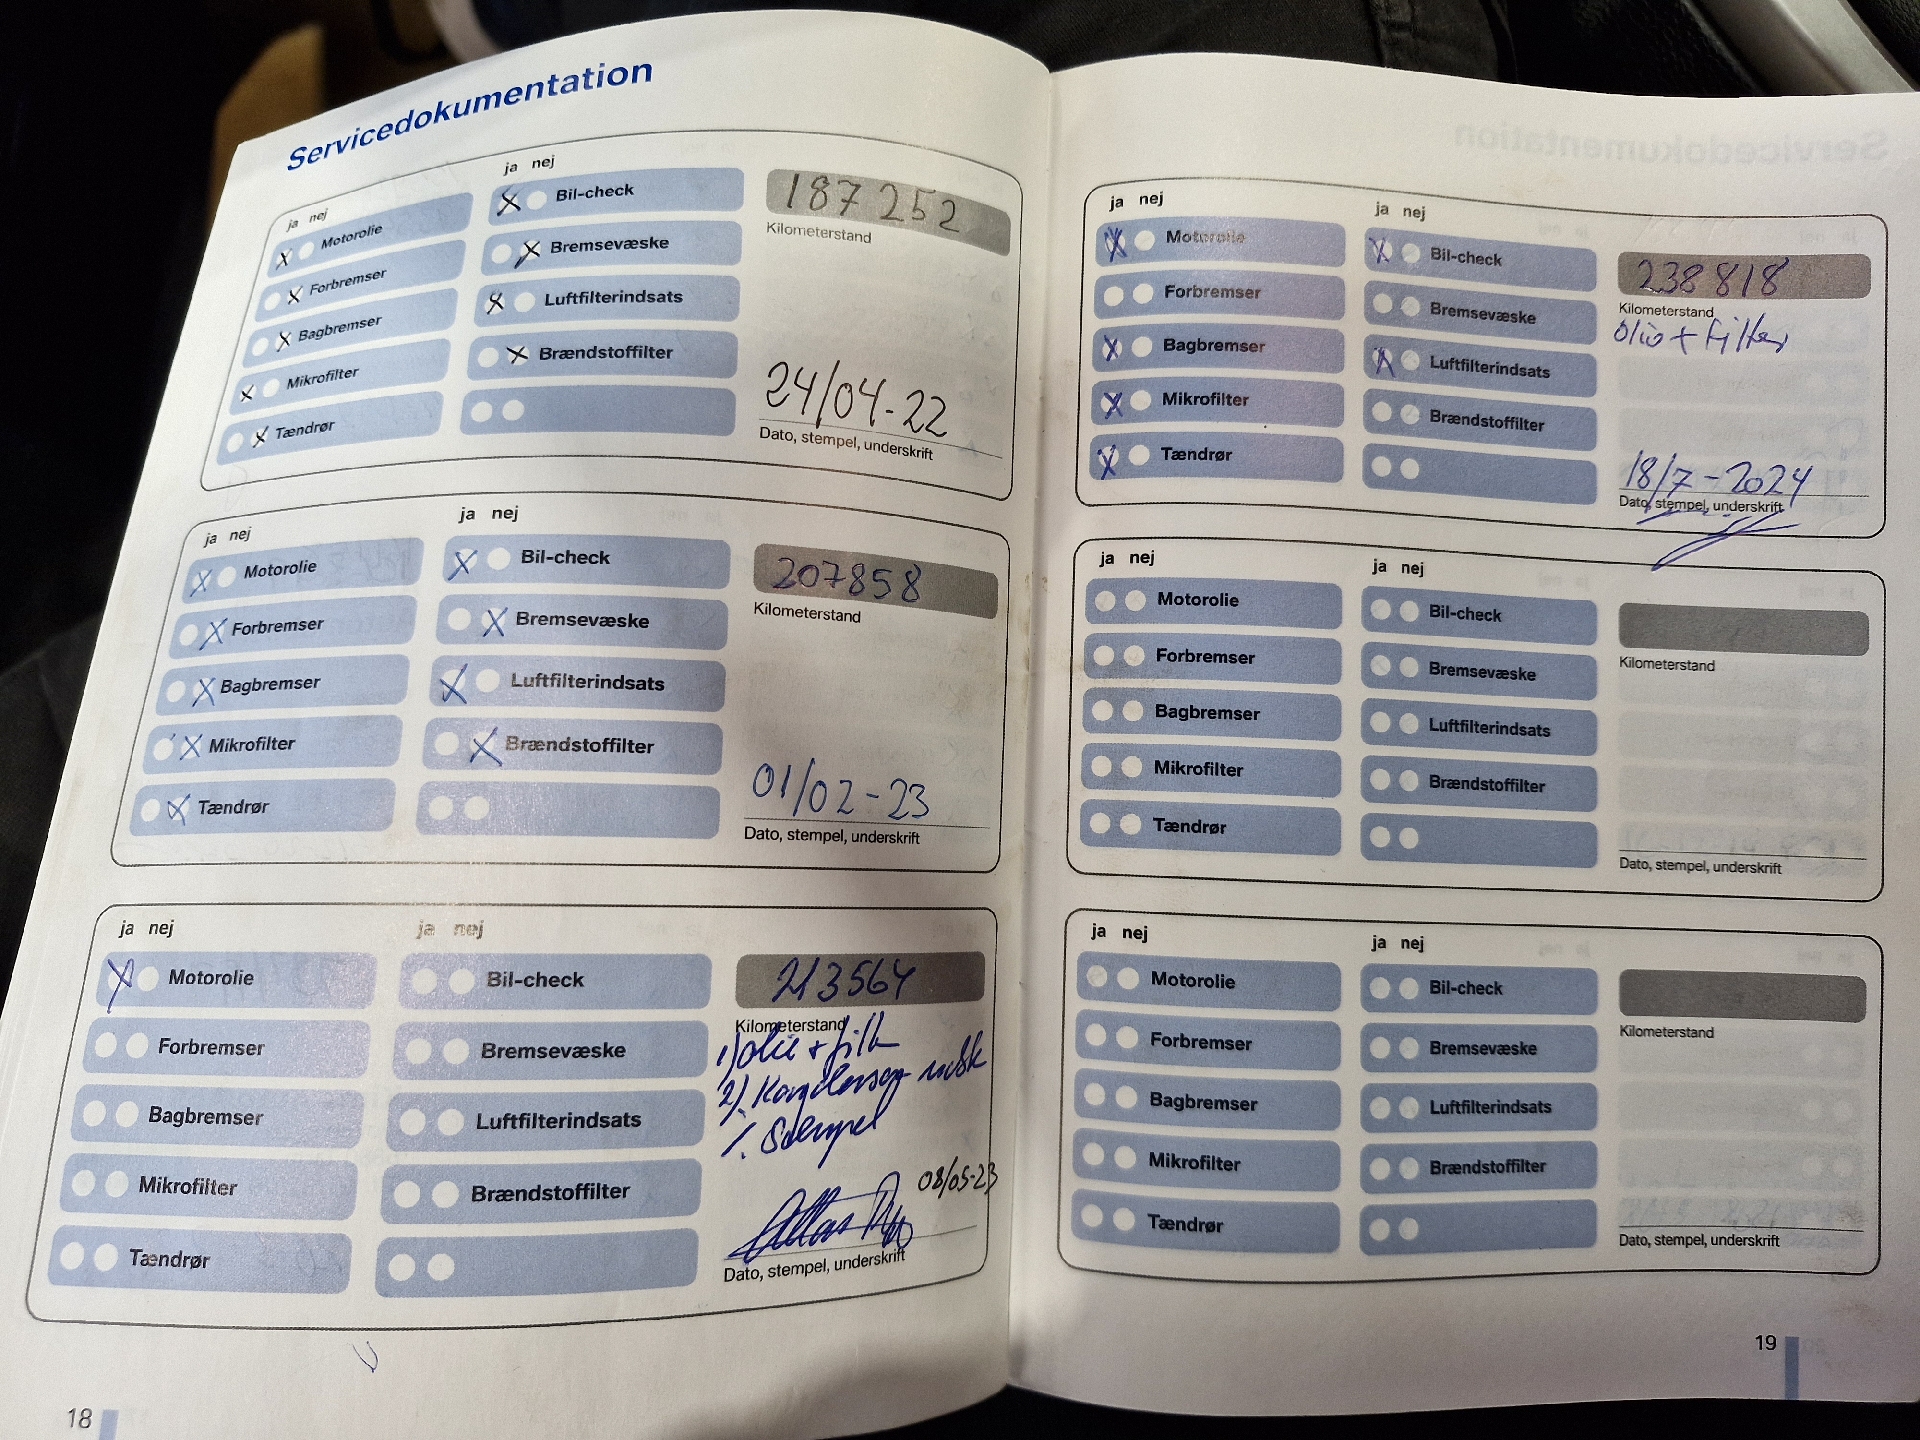 Servicedokumentation
ja nej
X Motorolie
X Forbremser
X Bagbremser
X Mikrofilter
X Tændrør
ja nej
X Bil-check
X Bremsevæske
X Luftfilterindsats
X Brændstoffilter
187252
Kilometerstand
24/04-22
Dato, stempel, underskrift
ja nej
X Motorolie
X Forbremser
X Bagbremser
X Mikrofilter
X Tændrør
ja nej
X Bil-check
X Bremsevæske
X Luftfilterindsats
X Brændstoffilter
207858
Kilometerstand
01/02-23
Dato, stempel, underskrift
ja nej
X Motorolie
Forbremser
Bagbremser
Mikrofilter
Tændrør
ja nej
Bil-check
Bremsevæske
Luftfilterindsats
Brændstoffilter
213564
Kilometerstand
1) olie + filt
2)
%. Stempel
08/05-23
Dato, stempel, underskrift
18
ja nej
X Motorolie
Forbremser
X Bagbremser
X Mikrofilter
X Tændrør
ja nej
X Bil-check
Bremsevæske
X Luftfilterindsats
Brændstoffilter
238818
Kilometerstand
Olie + filter
18/7-2024
Dato, stempel, underskrift
ja nej
Motorolie
Forbremser
Bagbremser
Mikrofilter
Tændrør
ja nej
Bil-check
Bremsevæske
Luftfilterindsats
Brændstoffilter
Kilometerstand
Dato, stempel, underskrift
ja nej
Motorolie
Forbremser
Bagbremser
Mikrofilter
Tændrør
ja nej
Bil-check
Bremsevæske
Luftfilterindsats
Brændstoffilter
Kilometerstand
Dato, stempel, underskrift
19